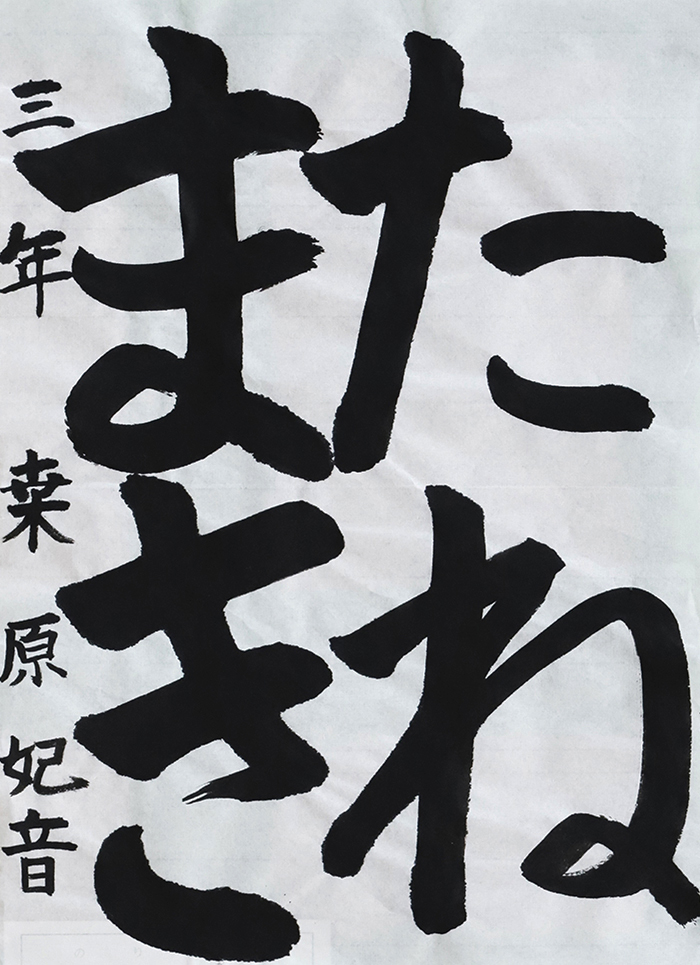 たね
まき
三年 桒原妃音